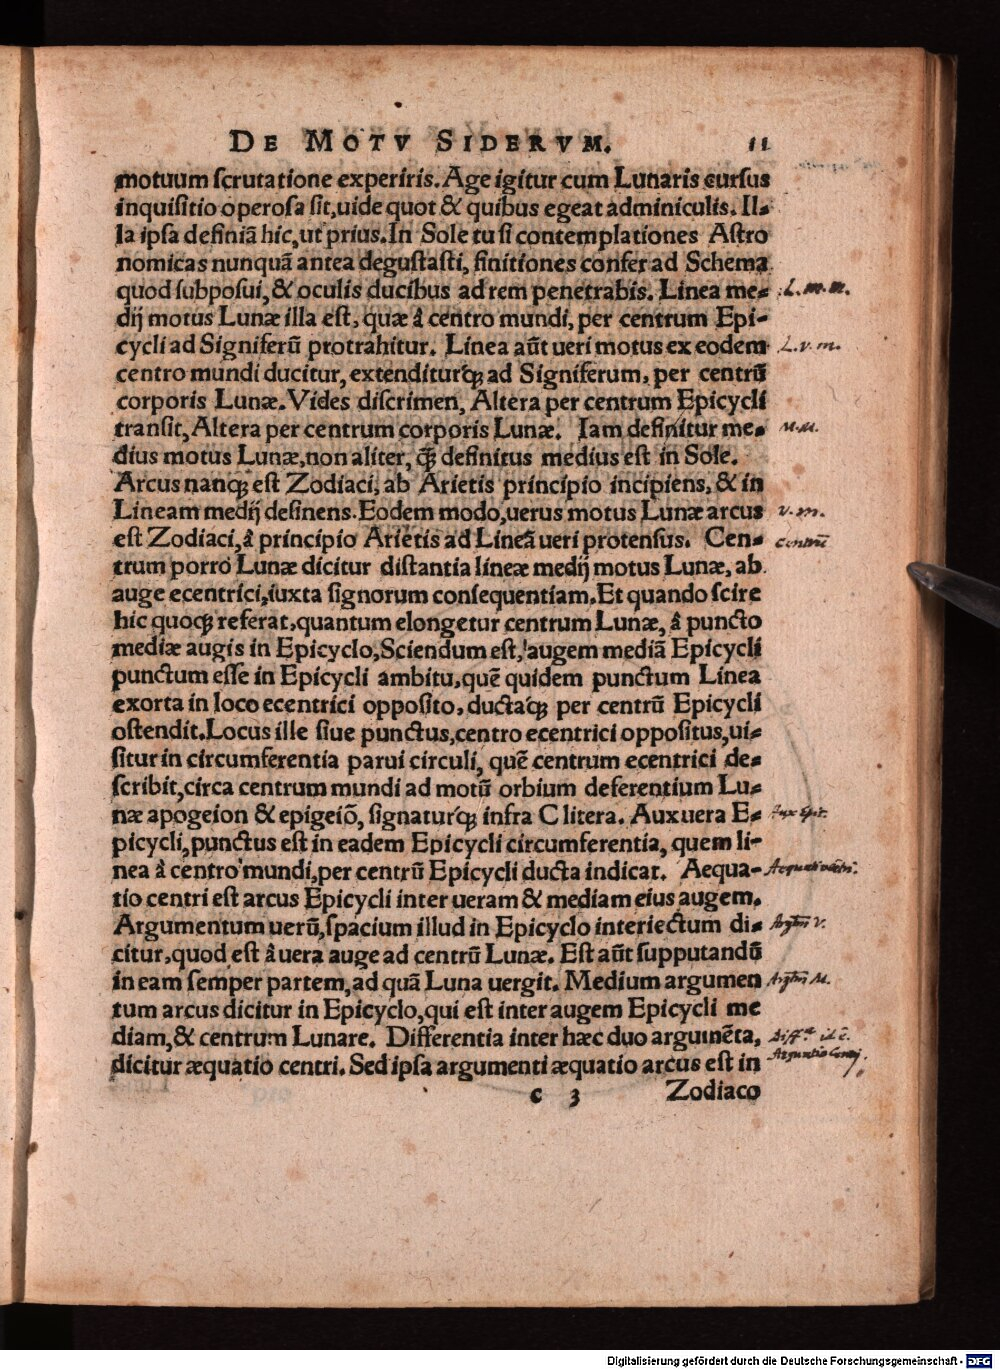 DE MOTV SIDERVM. 11
motuum scrutatione experiris. Age igitur cum Lunaris cursus
inquisitio operosa sit, uide quot & quibus egeat adminiculis. Il-
la ipsa definiã hic, ut prius. In Sole tu si contemplationes Astro
nomicas nunquã antea degustasti, finitiones confer ad Schema
quod subposui, & oculis ducibus ad rem penetrabis. Linea me- L. m. m.
dij motus Lunæ illa est, quæ â centro mundi, per centrum Epi-
cycli ad Signiferũ protrahitur. Linea aũt ueri motus ex eodem L. v. m.
centro mundi ducitur, extenditurq́; ad Signiferum, per centrũ
corporis Lunæ. Vides discrimen, Altera per centrum Epicycli
transit, Altera per centrum corporis Lunæ. Iam definitur me- M. M.
dius motus Lunæ, non aliter, q̃; definitus medius est in Sole.
Arcus nanq; est Zodiaci, ab Arietis principio incipiens, & in
Lineam medij desinens. Eodem modo, uerus motus Lunæ arcus v. m.
est Zodiaci, â principio Arietis ad Lineã ueri protensus. Cen- Centrũ
trum porro Lunæ dicitur distantia lineæ medij motus Lunæ, ab
auge ecentrici, iuxta signorum consequentiam. Et quando scire
hic quoq; referat, quantum elongetur centrum Lunæ, â puncto
mediæ augis in Epicyclo, Sciendum est, augem mediã Epicycli
punctum esse in Epicycli ambitu, quẽ quidem punctum Linea
exorta in loco ecentrici opposito, ductaq́; per centrũ Epicycli
ostendit. Locus ille siue punctus, centro ecentrici oppositus, ui-
situr in circumferentia parui circuli, quẽ centrum ecentrici de-
scribit, circa centrum mundi ad motũ orbium deferentium Lu-
næ apogeion & epigeiõ, signaturq́; infra C litera. Aux uera E- Aux Epic.
picycli, punctus est in eadem Epicycli circumferentia, quem li-
nea â centro mundi, per centrũ Epicycli ducta indicat. Aequa-
tio centri est arcus Epicycli inter ueram & mediam eius augem.
Argumentum uerũ, spacium illud in Epicyclo interiectum di- Argtũ V.
citur, quod est â uera auge ad centrũ Lunæ. Est aũt supputandũ
in eam semper partem, ad quã Luna uergit. Medium argumen Argtũ M.
tum arcus dicitur in Epicyclo, qui est inter augem Epicycli me
diam, & centrum Lunare. Differentia inter hæc duo argumẽta,
dicitur æquatio centri. Sed ipsa argumenti æquatio arcus est in
c 3 Zodiaco
Digitalisierung gefördert durch die Deutsche Forschungsgemeinschaft - DFG